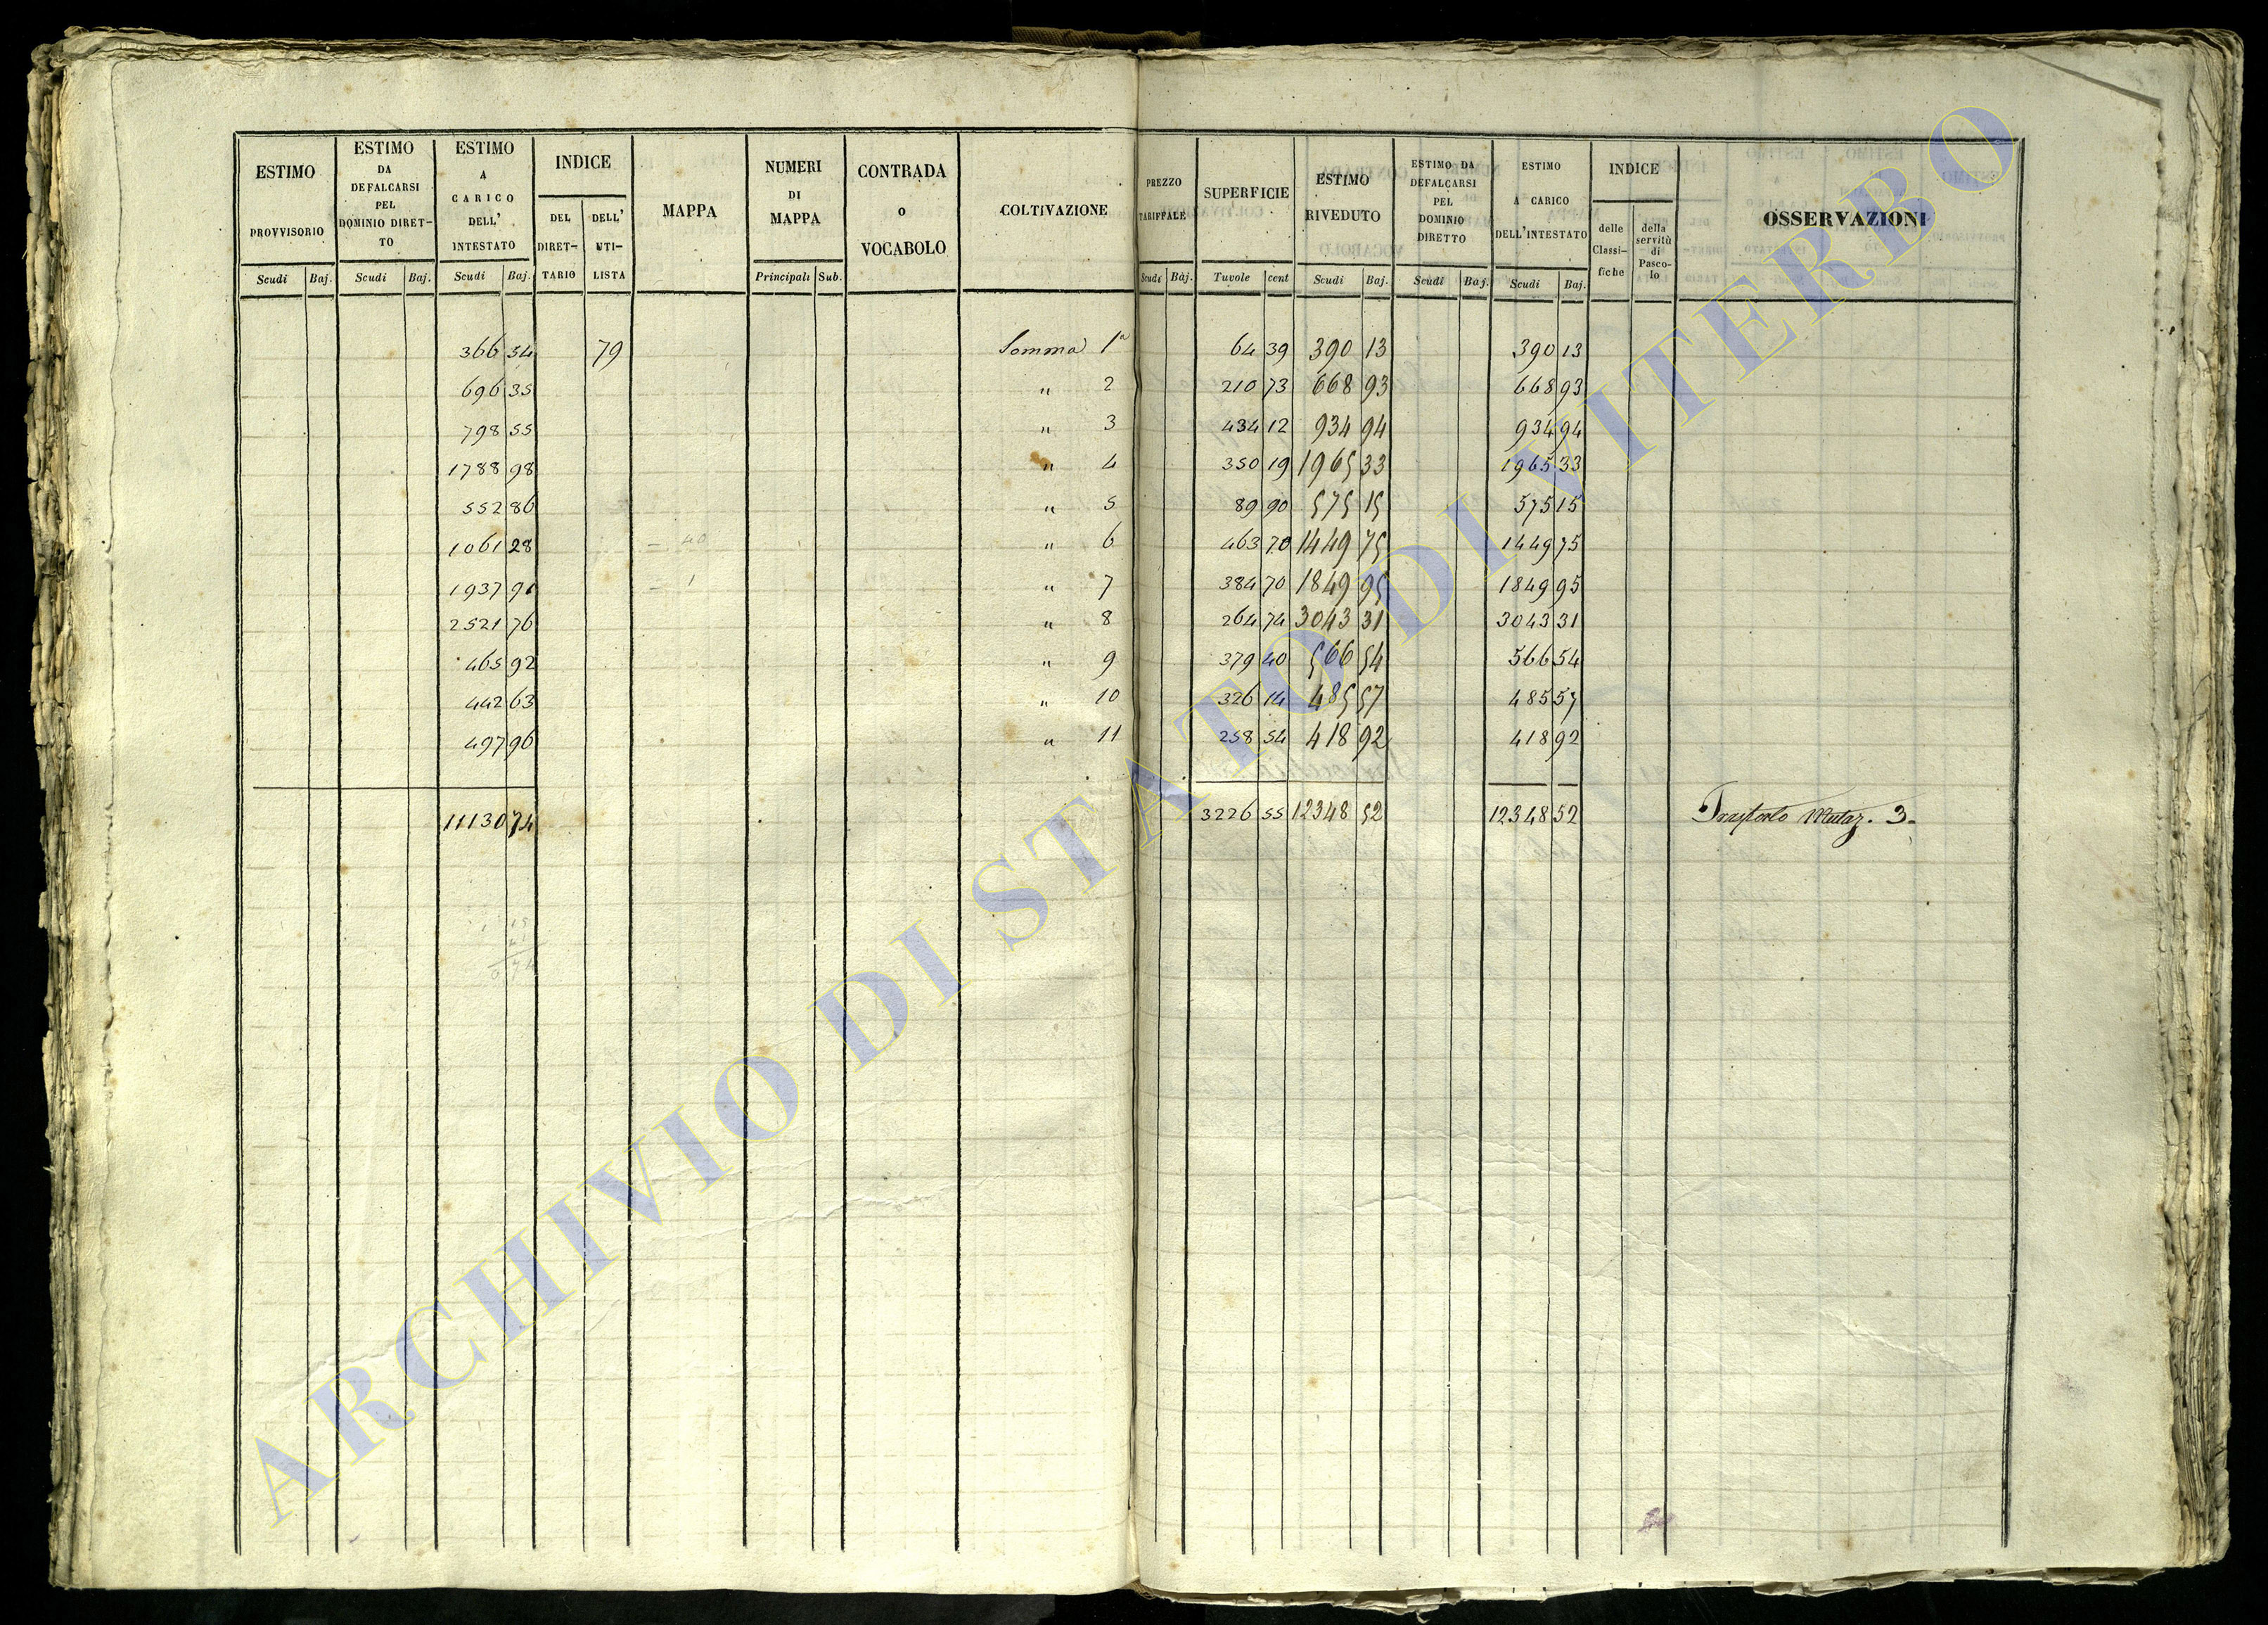 ESTIMO PROVVISORIO
Scudi Baj.
ESTIMO DA DEFALCARSI PEL DOMINIO DIRET- TO
Scudi Baj.
ESTIMO A CARICO DELL' INTESTATO
Scudi Baj.
INDICE
DEL DIRET- TARIO
DELL' UTI- LISTA
MAPPA
NUMERI DI MAPPA
Principali Sub.
CONTRADA o VOCABOLO
COLTIVAZIONE
PREZZO TARIFFALE
Scudi Baj.
SUPERFICIE
Tavole cent
ESTIMO RIVEDUTO
Scudi Baj.
ESTIMO DA DEFALCARSI PEL DOMINIO DIRETTO
Scudi Baj.
ESTIMO A CARICO DELL'INTESTATO
Scudi Baj.
INDICE
delle Classi- fiche
della servitù di Pasco- lo
OSSERVAZIONI
366 54 79 Somma 1ª 64 39 390 13 390 13
696 35 " 2 210 73 668 93 668 93
798 55 " 3 434 12 934 94 934 94
1788 98 " 4 350 19 1965 33 1965 33
552 86 " 5 89 90 575 15 575 15
1061 28 - 40 " 6 463 70 1449 75 1449 75
1937 91 - 1 " 7 384 70 1849 95 1849 95
2521 76 " 8 264 74 3043 31 3043 31
465 92 " 9 379 40 566 54 566 54
442 63 " 10 326 14 485 57 485 57
497 96 " 11 258 54 418 92 418 92
11130 74 3226 55 12348 52 12348 52 Trasporto Mutaz. 3.
ARCHIVIO DI STATO DI VITERBO